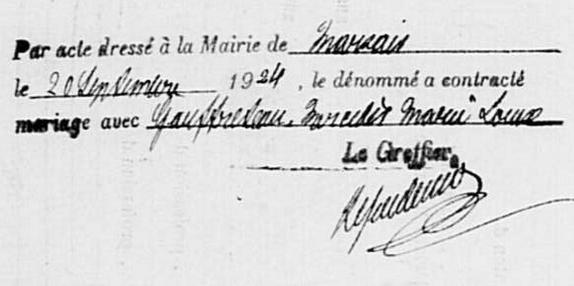 Par acte dressé à la Mairie de Marsais
le 20 Septembre 1924, le dénommé a contracté
mariage avec Gauffreteau, Mercédès Marie Louise
Le Greffier,